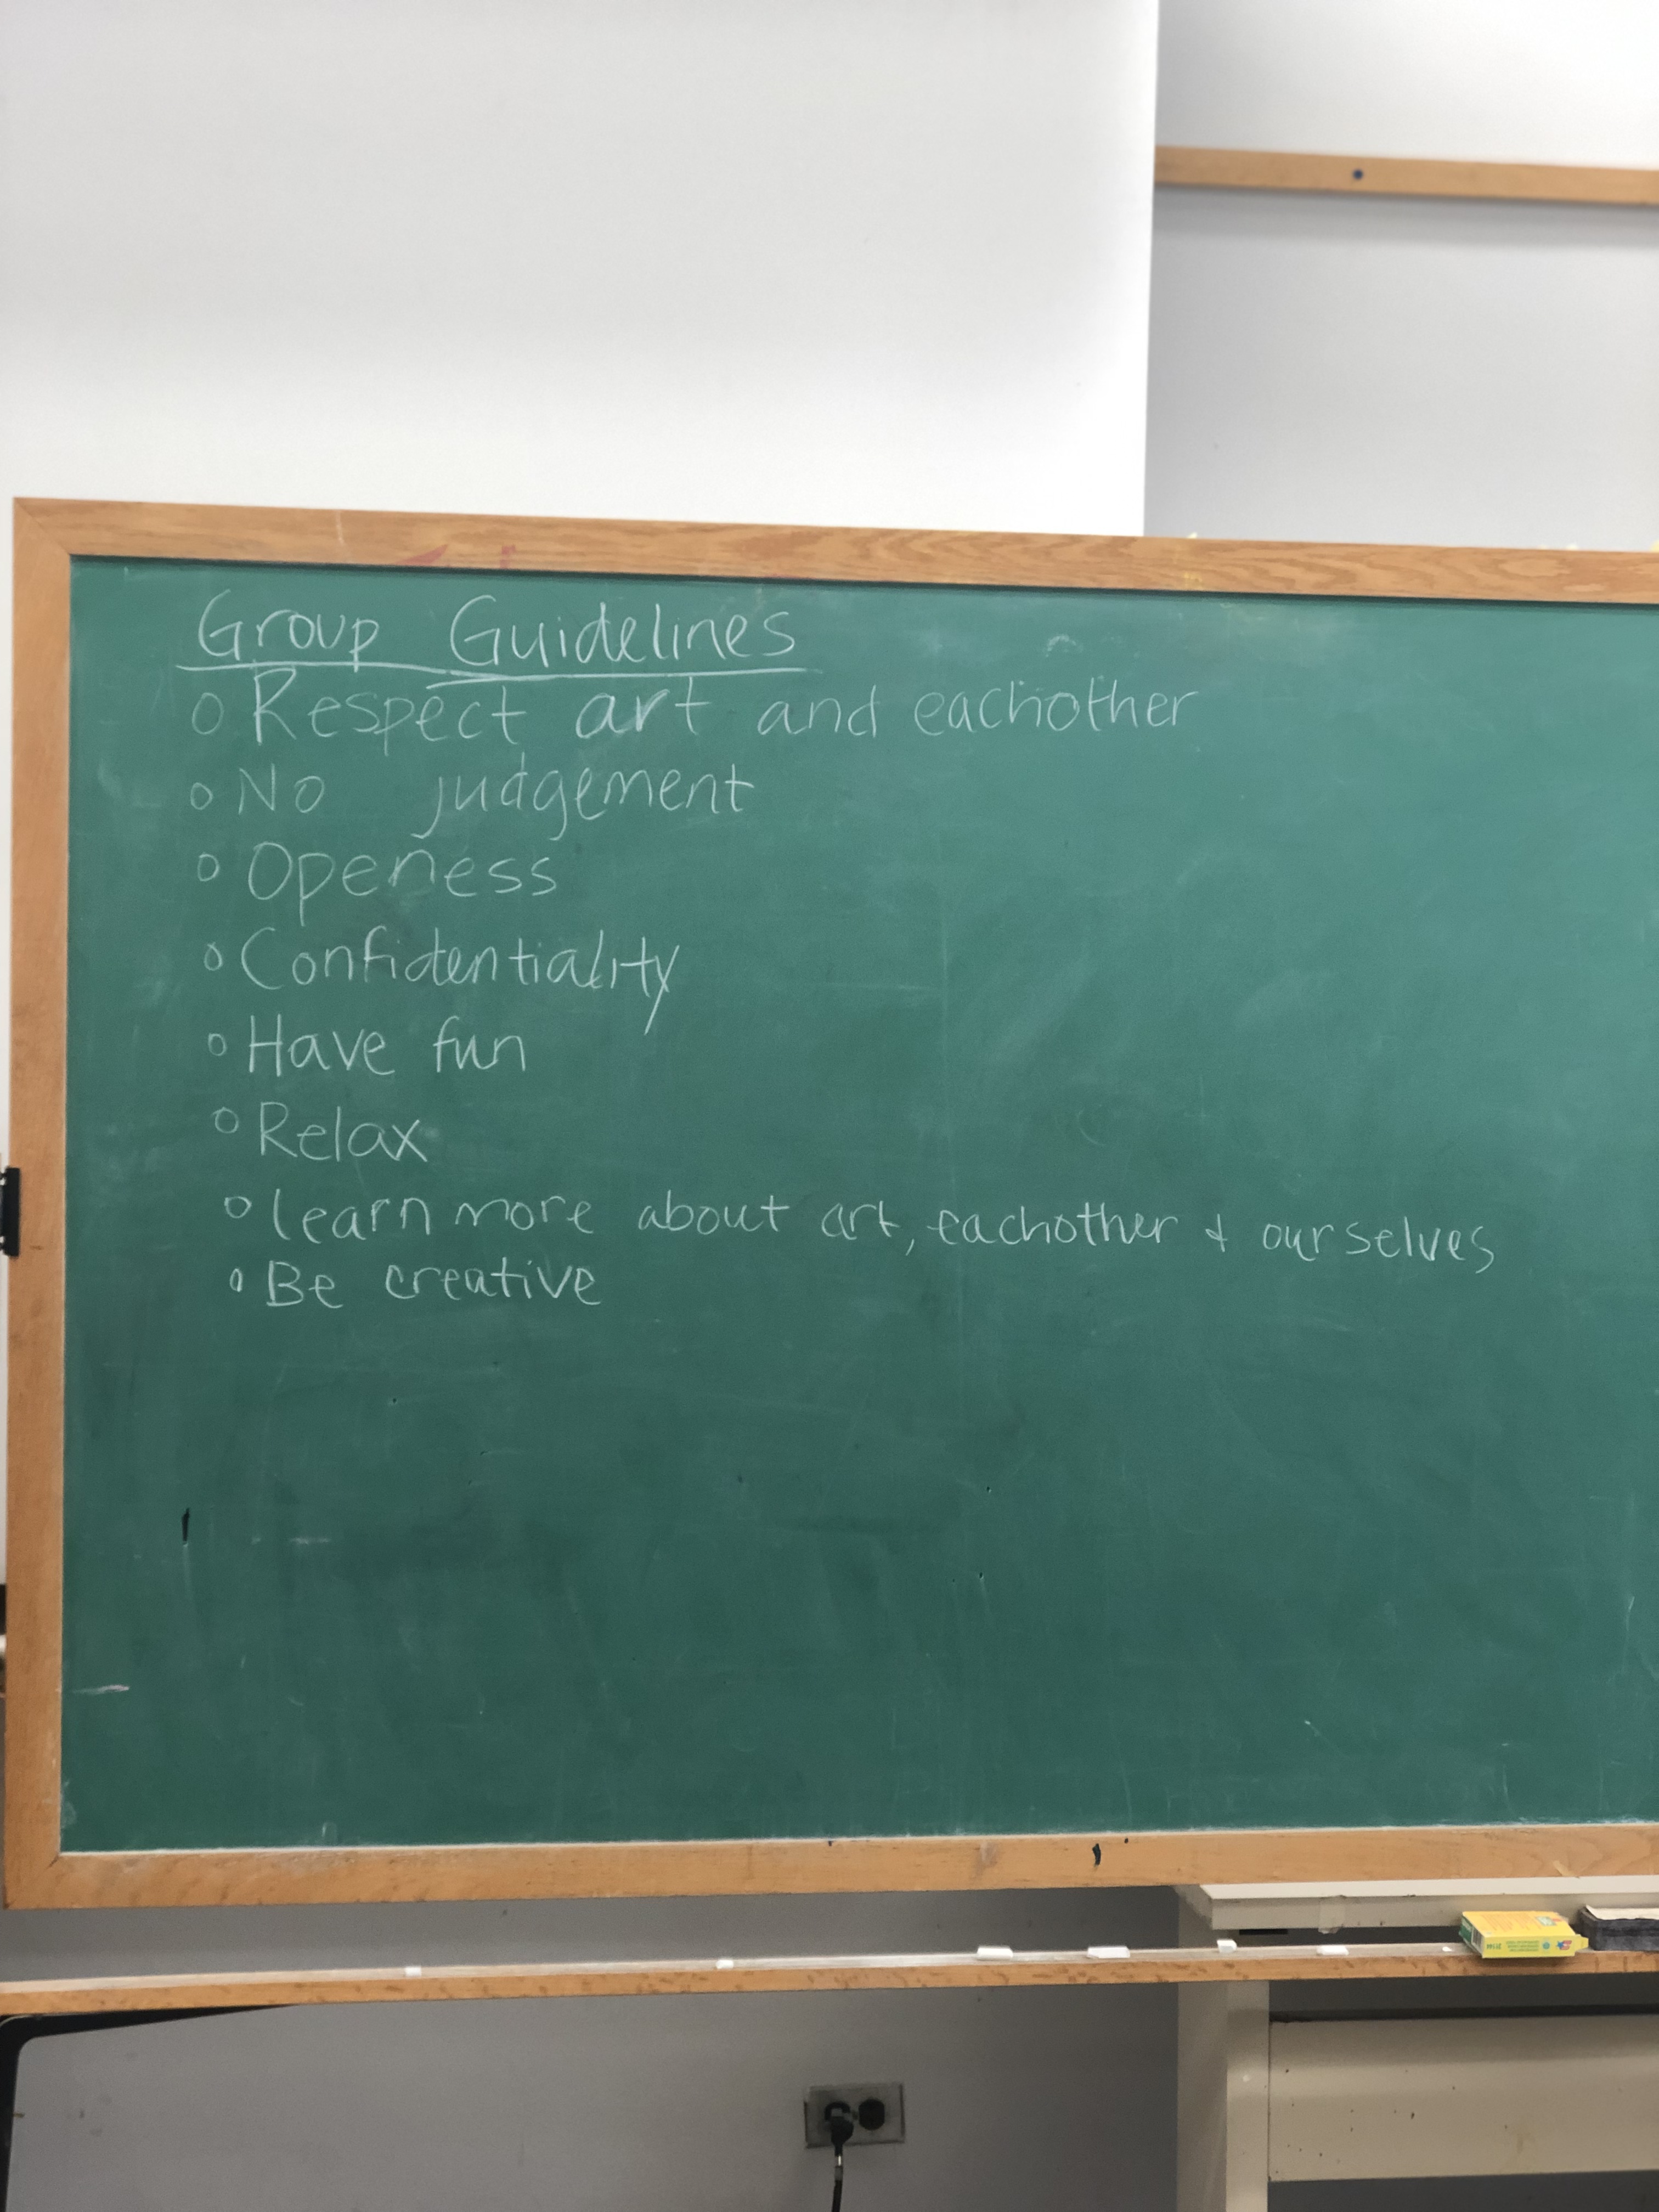 Group Guidelines
o Respect art and eachother
o No judgement
o Openess
o Confidentiality
o Have fun
o Relax
o learn more about art, eachother & ourselves
o Be creative